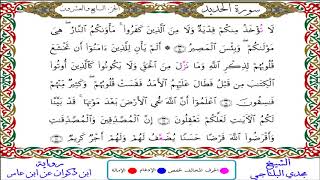 سورة الحديد
الجزء السابع والعشرون
لَا تُؤْخَذُ مِنكُمْ فِدْيَةٌ وَلَا مِنَ الَّذِينَ كَفَرُوا مَأْوَىٰكُمُ النَّارُ هِيَ
مَوْلَىٰكُمْ وَبِئْسَ الْمَصِيرُ أَلَمْ يَأْنِ لِلَّذِينَ ءَامَنُوا أَن تَخْشَعَ
قُلُوبُهُمْ لِذِكْرِ اللَّهِ وَمَا نَزَّلَ مِنَ الْحَقِّ وَلَا يَكُونُوا كَالَّذِينَ أُوتُوا
الْكِتَٰبَ مِن قَبْلُ فَطَالَ عَلَيْهِمُ الْأَمَدُ فَقَسَتْ قُلُوبُهُمْ وَكَثِيرٌ مِّنْهُمْ
فَٰسِقُونَ اعْلَمُوا أَنَّ اللَّهَ يُحْيِ الْأَرْضَ بَعْدَ مَوْتِهَا قَدْ بَيَّنَّا
لَكُمُ الْءَايَٰتِ لَعَلَّكُمْ تَعْقِلُونَ إِنَّ الْمُصَّدِّقِينَ وَالْمُصَّدِّقَٰتِ
وَأَقْرَضُوا اللَّهَ قَرْضًا حَسَنًا يُضَعَّفُ لَهُمْ وَلَهُمْ أَجْرٌ كَرِيمٌ
الشيخ
مجدي البلتاجي
الحرف المخالف لحفص الإدغام الإمالة
رواية
ابن ذكوان عن ابن عامر